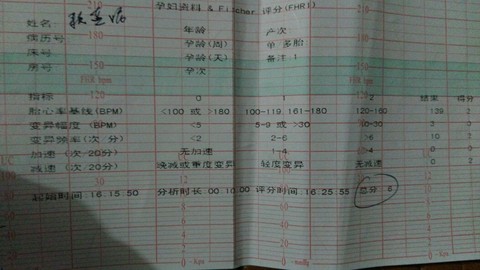 孕妇资料 & Fischer 评分(FHR1)
姓名:
年龄 产次
病历号 180 180
孕龄(周) 单/多胎
床号
孕龄(天) 备注1
房号 150 150
孕次
FHR bpm FHR bpm
指标 120 0 1 2 结果 得分
胎心率基线(BPM) <100 或 >180 100-119,161-180 120-160 139 2
变异幅度 (BPM) <5 5-9 或 >30 10-30 3 0
变异频率(次/分) <2 2-6 >6 10 2
加速 (次/20分) 无加速 1-4 0
减速 (次/20分) 晚减或重度变异 轻度变异 无减速 0 2
起始时间:16:15:50 分析时长:00:10:00 评分时间:16:25:55 总分: 6